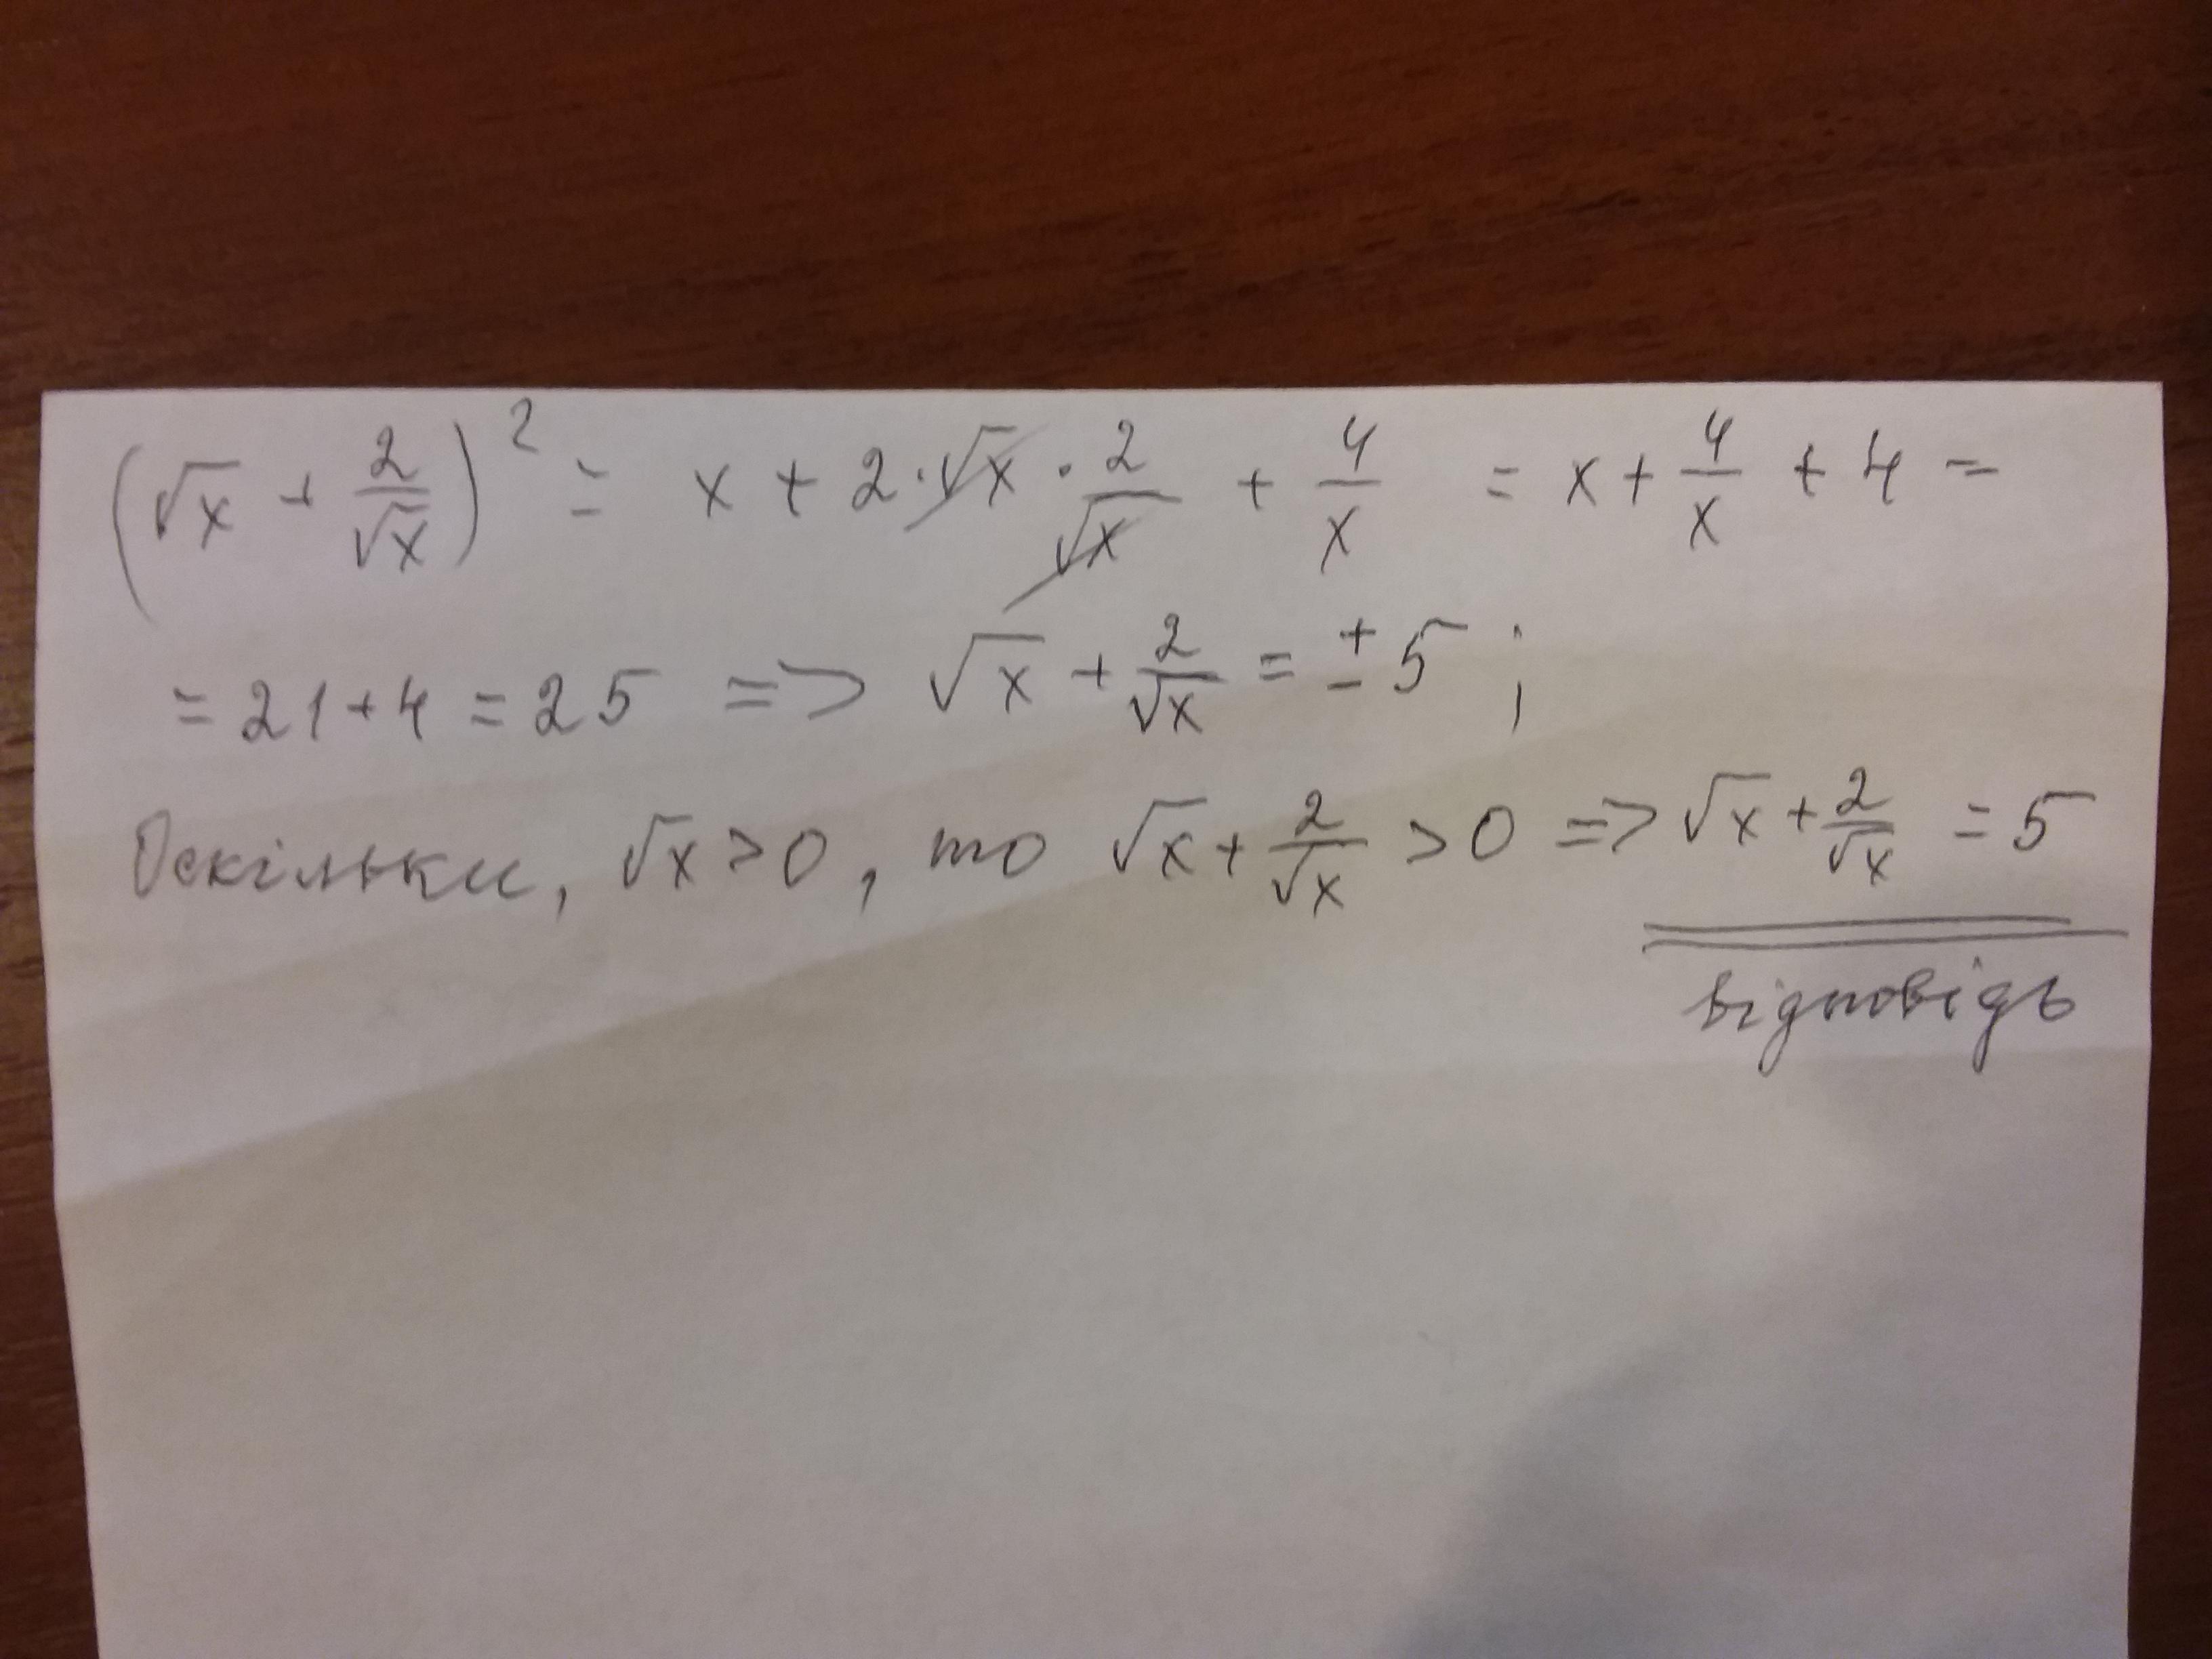 (√x + 2/√x)² = x + 2·√x · 2/√x + 4/x = x + 4/x + 4 =
= 21 + 4 = 25 => √x + 2/√x = ± 5 ;
Оскільки, √x > 0, то √x + 2/√x > 0 => √x + 2/√x = 5
відповідь